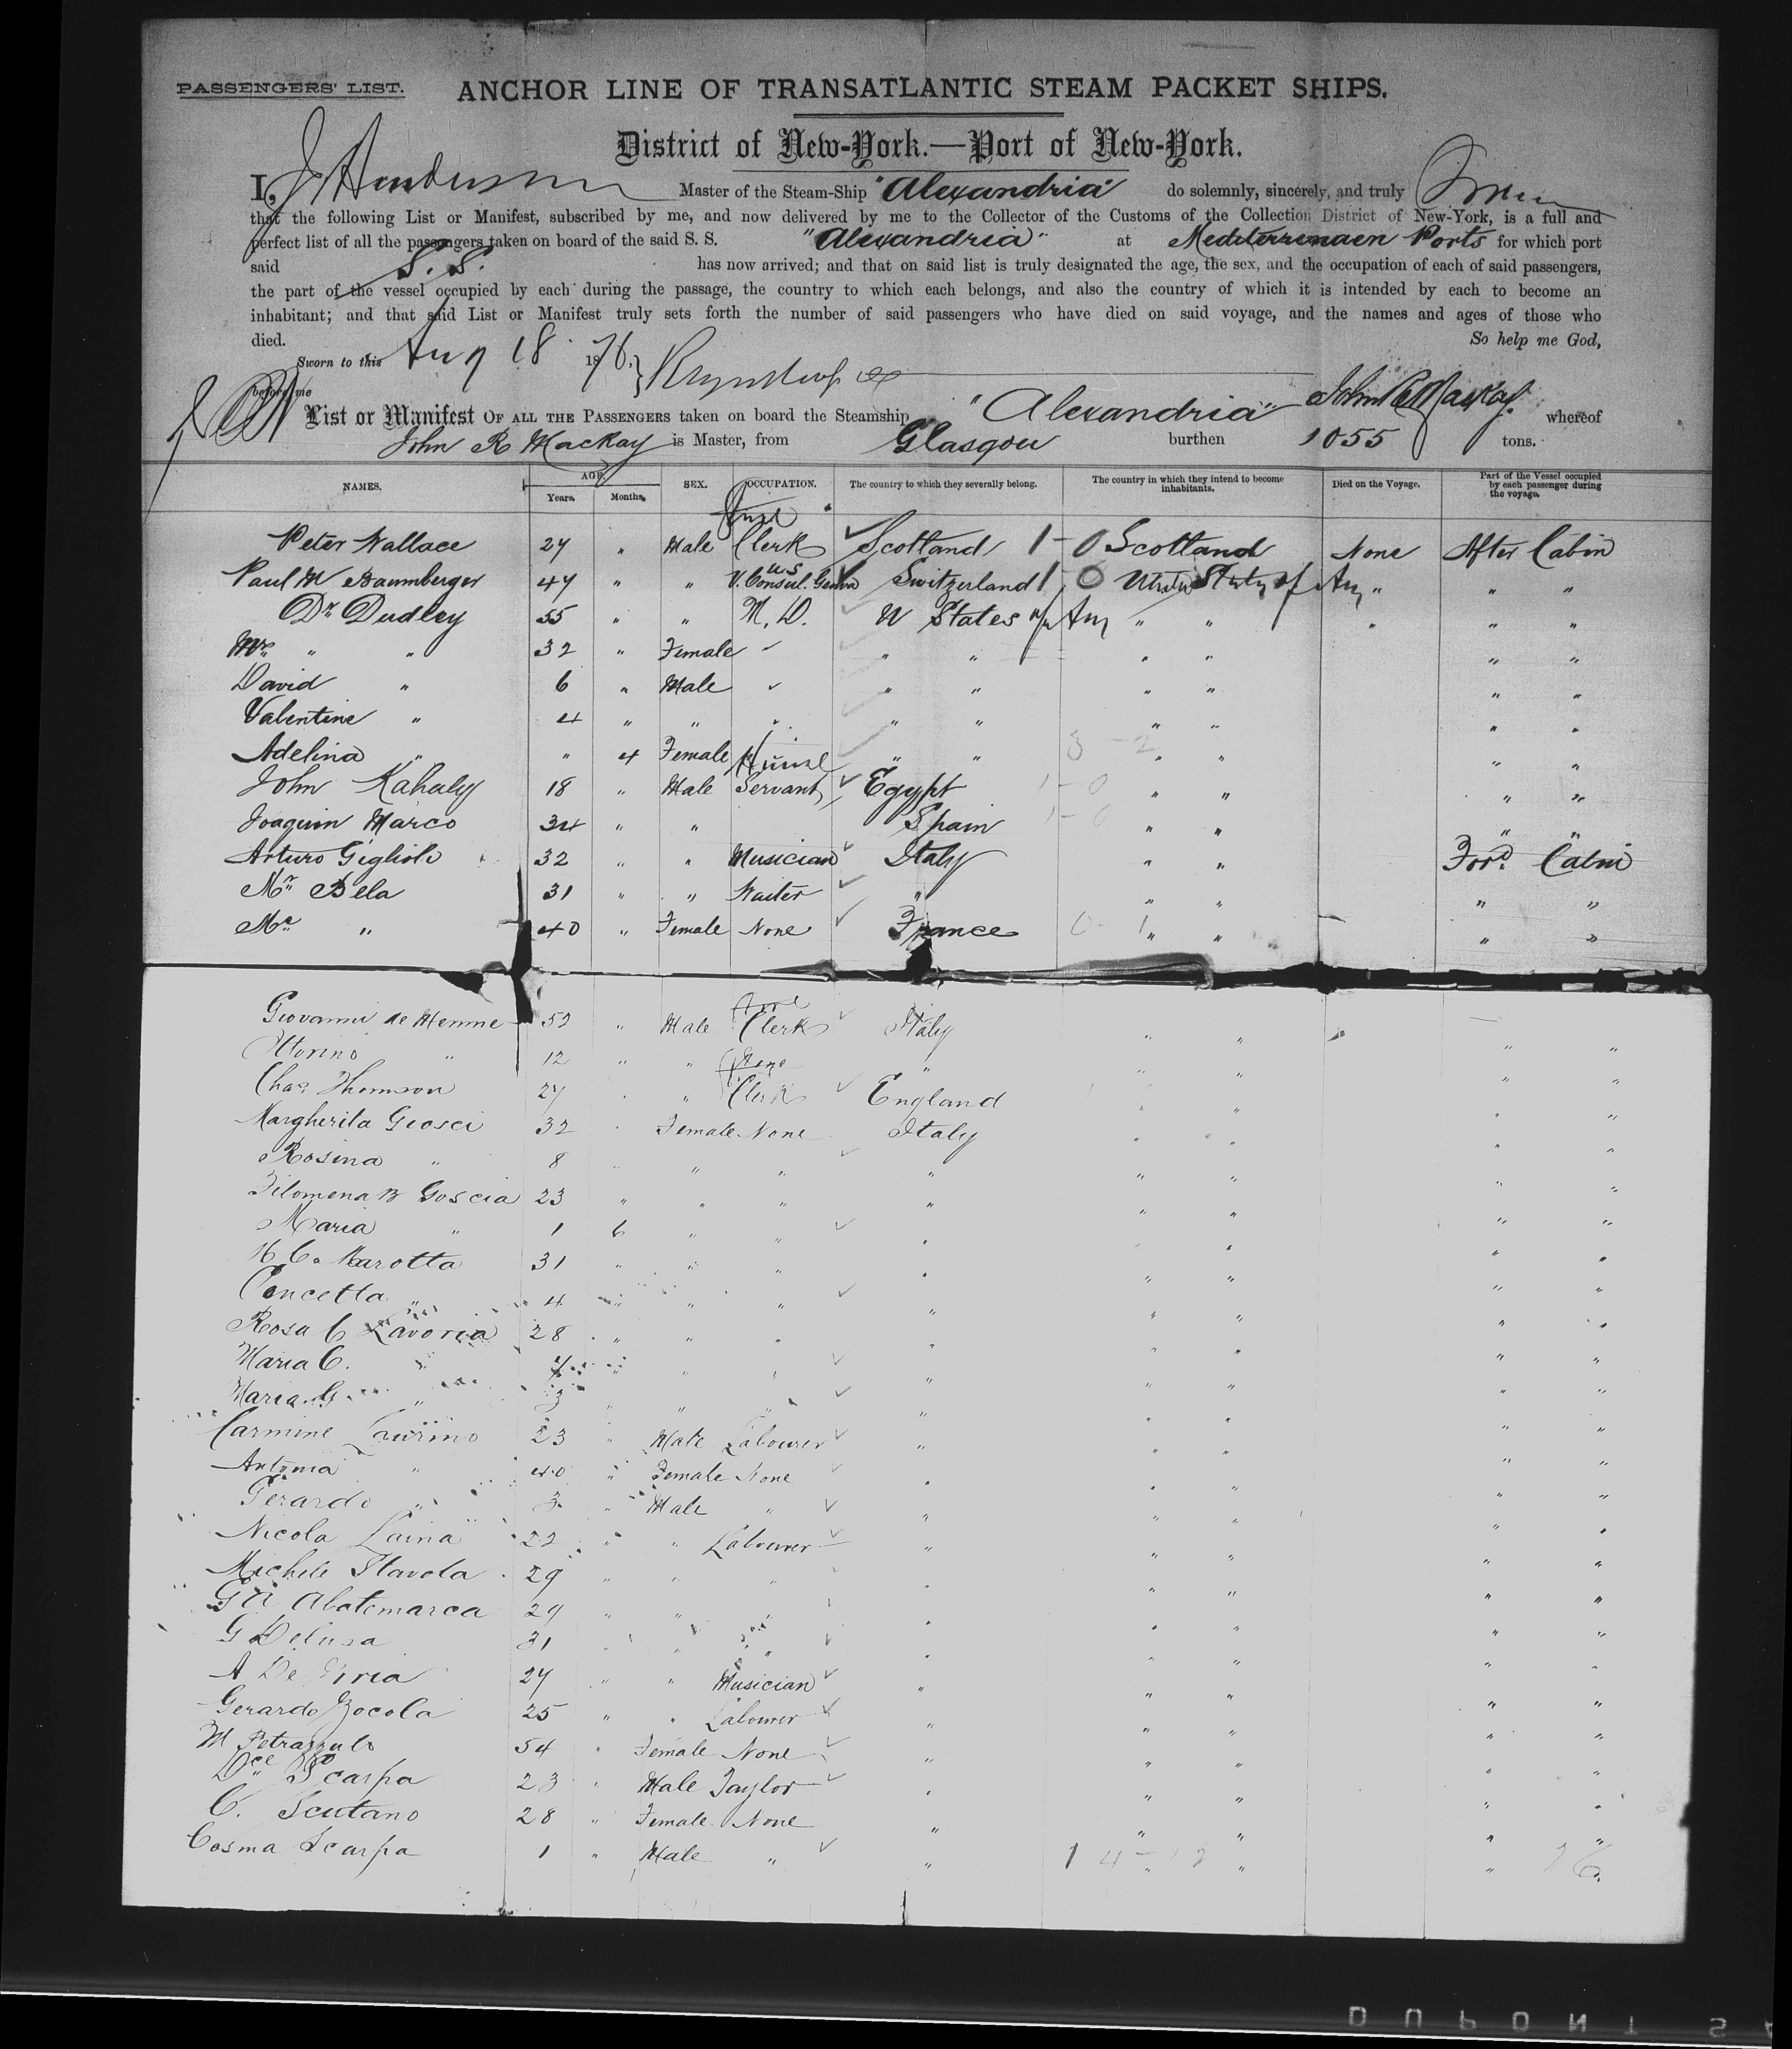 PASSENGERS' LIST. ANCHOR LINE OF TRANSATLANTIC STEAM PACKET SHIPS.
District of New-York.—Port of New-York.
I, J Henderson Master of the Steam-Ship "Alexandria" do solemnly, sincerely, and truly Swear
that the following List or Manifest, subscribed by me, and now delivered by me to the Collector of the Customs of the Collection District of New-York, is a full and
perfect list of all the passengers taken on board of the said S. S. "Alexandria" at Mediterrenaen Ports for which port
said S.S. has now arrived; and that on said list is truly designated the age, the sex, and the occupation of each of said passengers,
the part of the vessel occupied by each during the passage, the country to which each belongs, and also the country of which it is intended by each to become an
inhabitant; and that said List or Manifest truly sets forth the number of said passengers who have died on said voyage, and the names and ages of those who
died. So help me God,
Sworn to this Aug 18 1876.
before me John R Mackay
List or Manifest OF ALL THE PASSENGERS taken on board the Steamship "Alexandria" whereof
John R Mackay is Master, from Glasgow burthen 1055 tons.
NAMES. AGE. Years. Months. SEX. OCCUPATION. The country to which they severally belong. The country in which they intend to become inhabitants. Died on the Voyage. Part of the Vessel occupied by each passenger during the voyage.
Peter Wallace 27 " Male Clerk Scotland 1-0 Scotland None After Cabin
Paul W Baumberger 47 " " U.S V. Consul. Geneva Switzerland 1-0 United States of Am " " "
Dr Dudley 55 " " M.D. U States of Am " " " " "
Mrs " " 32 " Female " " " " " " "
David " 6 " Male " " " " " " "
Valentine " 4 " " " " " " " " "
Adelina " " 4 Female " " 3-2 " " " "
John Kahaly 18 " Male Servant Egypt 1-0 " " " "
Joaquin Marco 34 " " Spain 1-0 " " " "
Arturo Giglioli 32 " " Musician Italy " " Ford. Cabin
Mr Bela 31 " " Waiter " " " " "
Me " 40 " Female None France 0-1 " " " "
Giovanni de Memme 52 " Male Clerk Italy " " " "
Ottorino " 12 " " None " " " " "
Chas Thomson 27 " " Clerk England " " " "
Margherita Giosci 32 " Female None Italy " " " "
Rosina " 8 " " " " " " " "
Filomena B Goscia 23 " " " " " " " "
Maria " 1 6 " " " " " " "
M Ca Marotta 31 " " " " " " " "
Concetta " 4 " " " " " " " "
Rosa C Lavoria 28 " " " " " " " "
Maria C. " 4 " " " " " " " "
Maria G " 3 " " " " " " " "
Carmine Laurino 23 " Male Labourer " " " " "
Antonia " 40 " Female None " " " " "
Gerardo " 3 " Male " " " " " "
Nicola Laina 22 " " Labourer " " " " "
Michele Stavola 29 " " " " " " " "
G A Abatemarca 29 " " " " " " " "
G Delusa 31 " " " " " " " "
A De 27 " " Musician " " " " "
Gerardo Zocola 25 " " Labourer " " " " "
M Petrazzulo 54 " Female None " " " " "
Dce Scarpa 23 " Male Taylor " " " " "
C. Scutano 28 " Female None " " " " "
Cosma Scarpa 1 " Male " " 14-12 " " " "
DUPONT SA